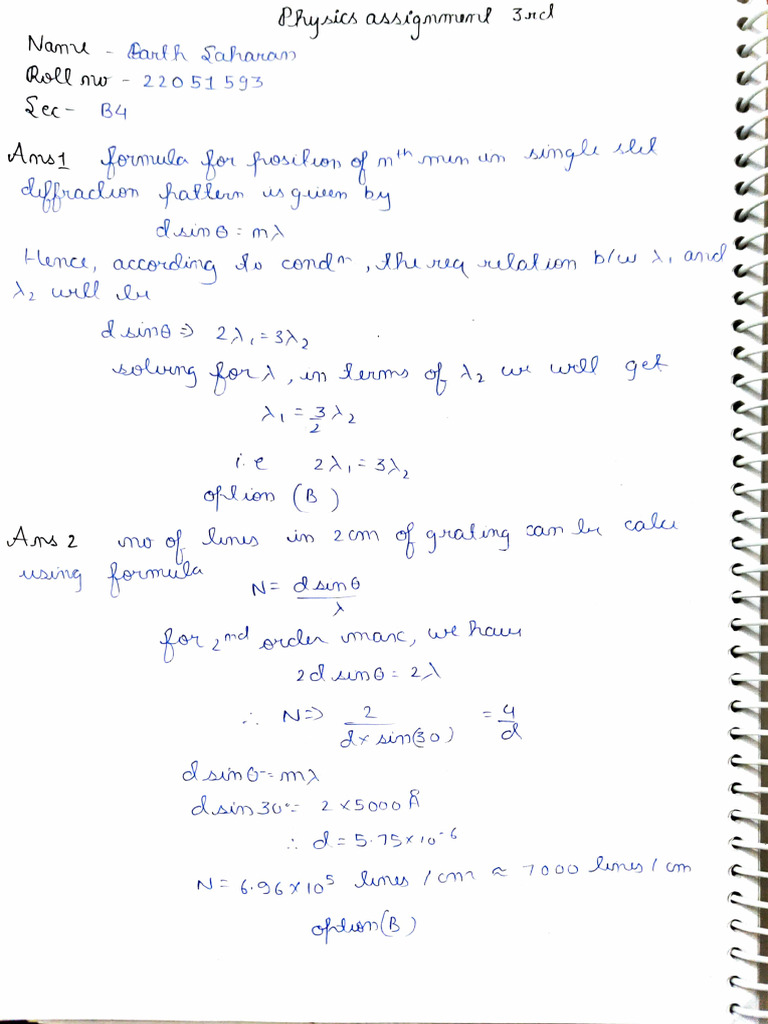 Physics assignment 3rd
Name - Sarth Saharan
Roll no - 22051593
Sec - B4
Ans 1 formula for position of mth men in single slit
diffraction pattern is given by
d sin θ = mλ
Hence, according to condn, the req relation b/w λ1 and
λ2 will be
d sinθ ⇒ 2λ1 = 3λ2
solving for λ, in terms of λ2 we will get
λ1 = 3/2 λ2
i.e 2λ1 = 3λ2
option (B)
Ans 2 no of lines in 2cm of grating can be calcu
using formula
N = d sinθ / λ
for 2nd order max, we have
2d sinθ = 2λ
∴ N ⇒ 2 / d × sin(30) = 4/d
d sinθ = mλ
d sin 30° = 2 × 5000 Å
∴ d = 5.75 × 10^-6
N = 6.96 × 10^5 lines / cm ≈ 7000 lines / cm
option (B)